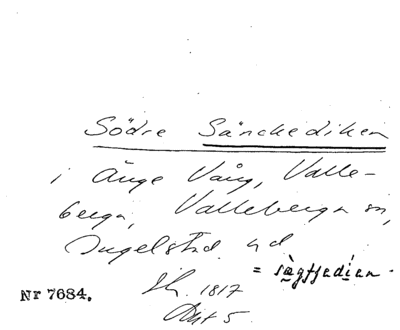 Södre Sänckediken
i Änge Vång, Valle-
berga, Vallebergа sn,
Ingelstad hd
= sägtjediен.
Sk. 1817
Akt 5
Nr 7684.